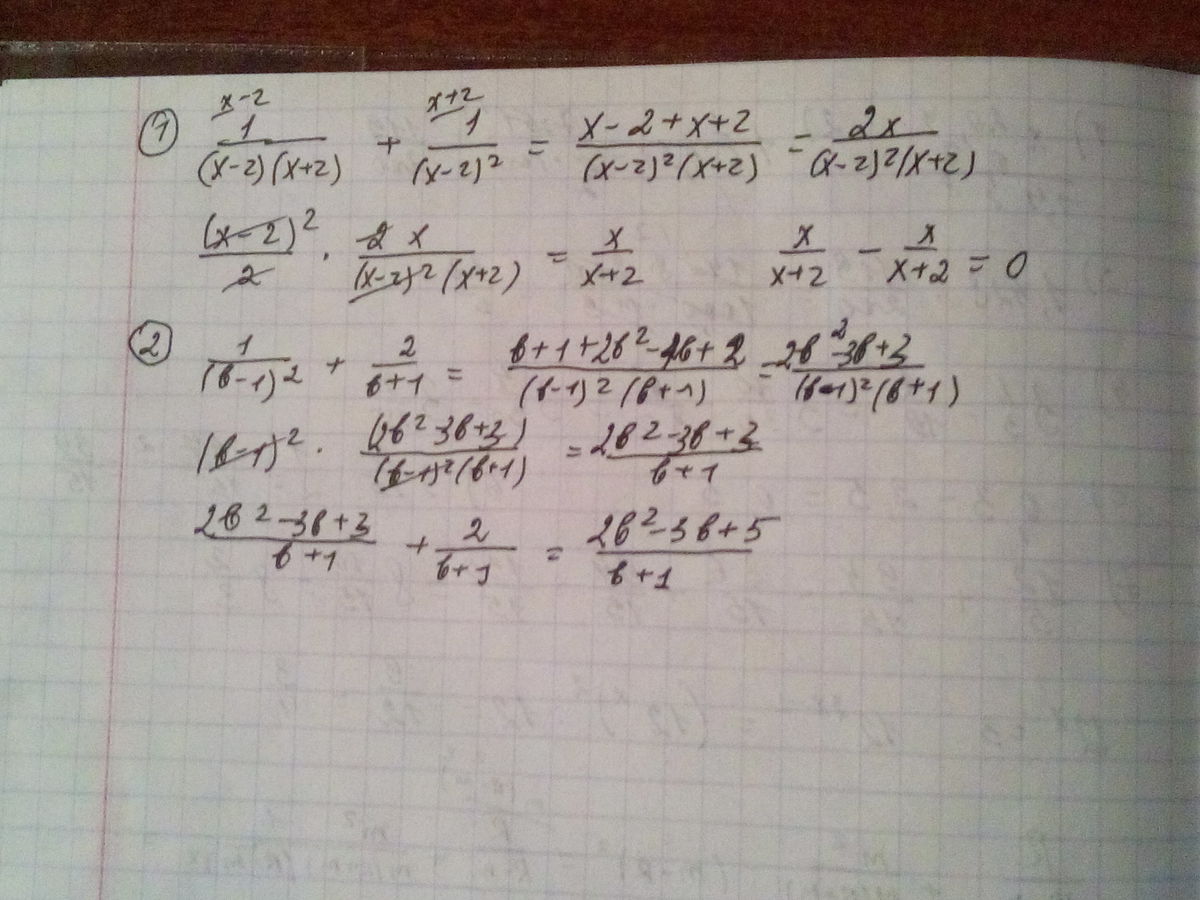 ① x-2 x+2
1/((x-2)(x+2)) + 1/(x-2)² = (x-2+x+2)/((x-2)²(x+2)) = 2x/((x-2)²(x+2))
(x-2)²/2 · 2x/((x-2)²(x+2)) = x/(x+2) x/(x+2) - x/(x+2) = 0
② 1/(в-1)² + 2/(в+1) = (в+1+2в²-4в+2)/((в-1)²(в+1)) = (2в²-3в+3)/((в-1)²(в+1))
(в-1)² · (2в²-3в+3)/((в-1)²(в+1)) = (2в²-3в+3)/(в+1)
(2в²-3в+3)/(в+1) + 2/(в+1) = (2в²-3в+5)/(в+1)